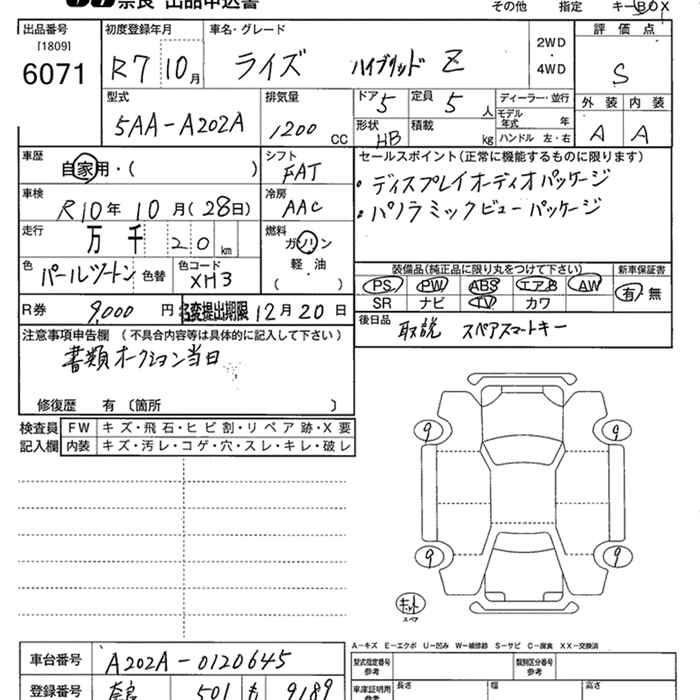 奈良 出品申込書
その他 指定 キーBOX
出品番号 初度登録年月 車名・グレード 評価点
[1809]
6071 R7 10月 ライズ ハイブリッド Z 2WD・4WD S
型式 排気量 ドア 5 定員 5人 ディーラー・並行 外装 内装
モデル年式 年
5AA-A202A 1200 CC 形状 HB 積載 kg ハンドル 左・右 A A
車歴 シフト セールスポイント(正常に機能するものに限ります)
自家用・( ) FAT ・ディスプレイオーディオパッケージ
車検 冷房 ・パノラミックビューパッケージ
R10年 10月(28日) AAC
走行 燃料
万 千 20 km ガソリン
軽・油
( )
色 色替 色コード 装備品(純正品に限り丸をつけて下さい) 新車保証書
パールツートン XH3 PS PW ABS エアB AW 有・無
SR ナビ TV カワ
R券 9,000円 名変提出期限 12月20日 後日品
取説 スペアスマートキー
注意事項申告欄 (不具合内容等は具体的に記入して下さい)
書類オークション当日
修復歴 有〔箇所 〕
検査員 FW キズ・飛石・ヒビ割・リペア跡・X要
記入欄 内装 キズ・汚レ・コゲ・穴・スレ・キレ・破レ
9 9
9 9
キット
スペア
A-キズ E-エクボ U-凹み W-補修跡 S-サビ C-腐食 XX-交換済
車台番号 A202A-0120645 型式指定番号 参考 類別区分番号 参考
登録番号 奈良 501 も 9189 車庫証明用 参考 長さ 幅 高さ